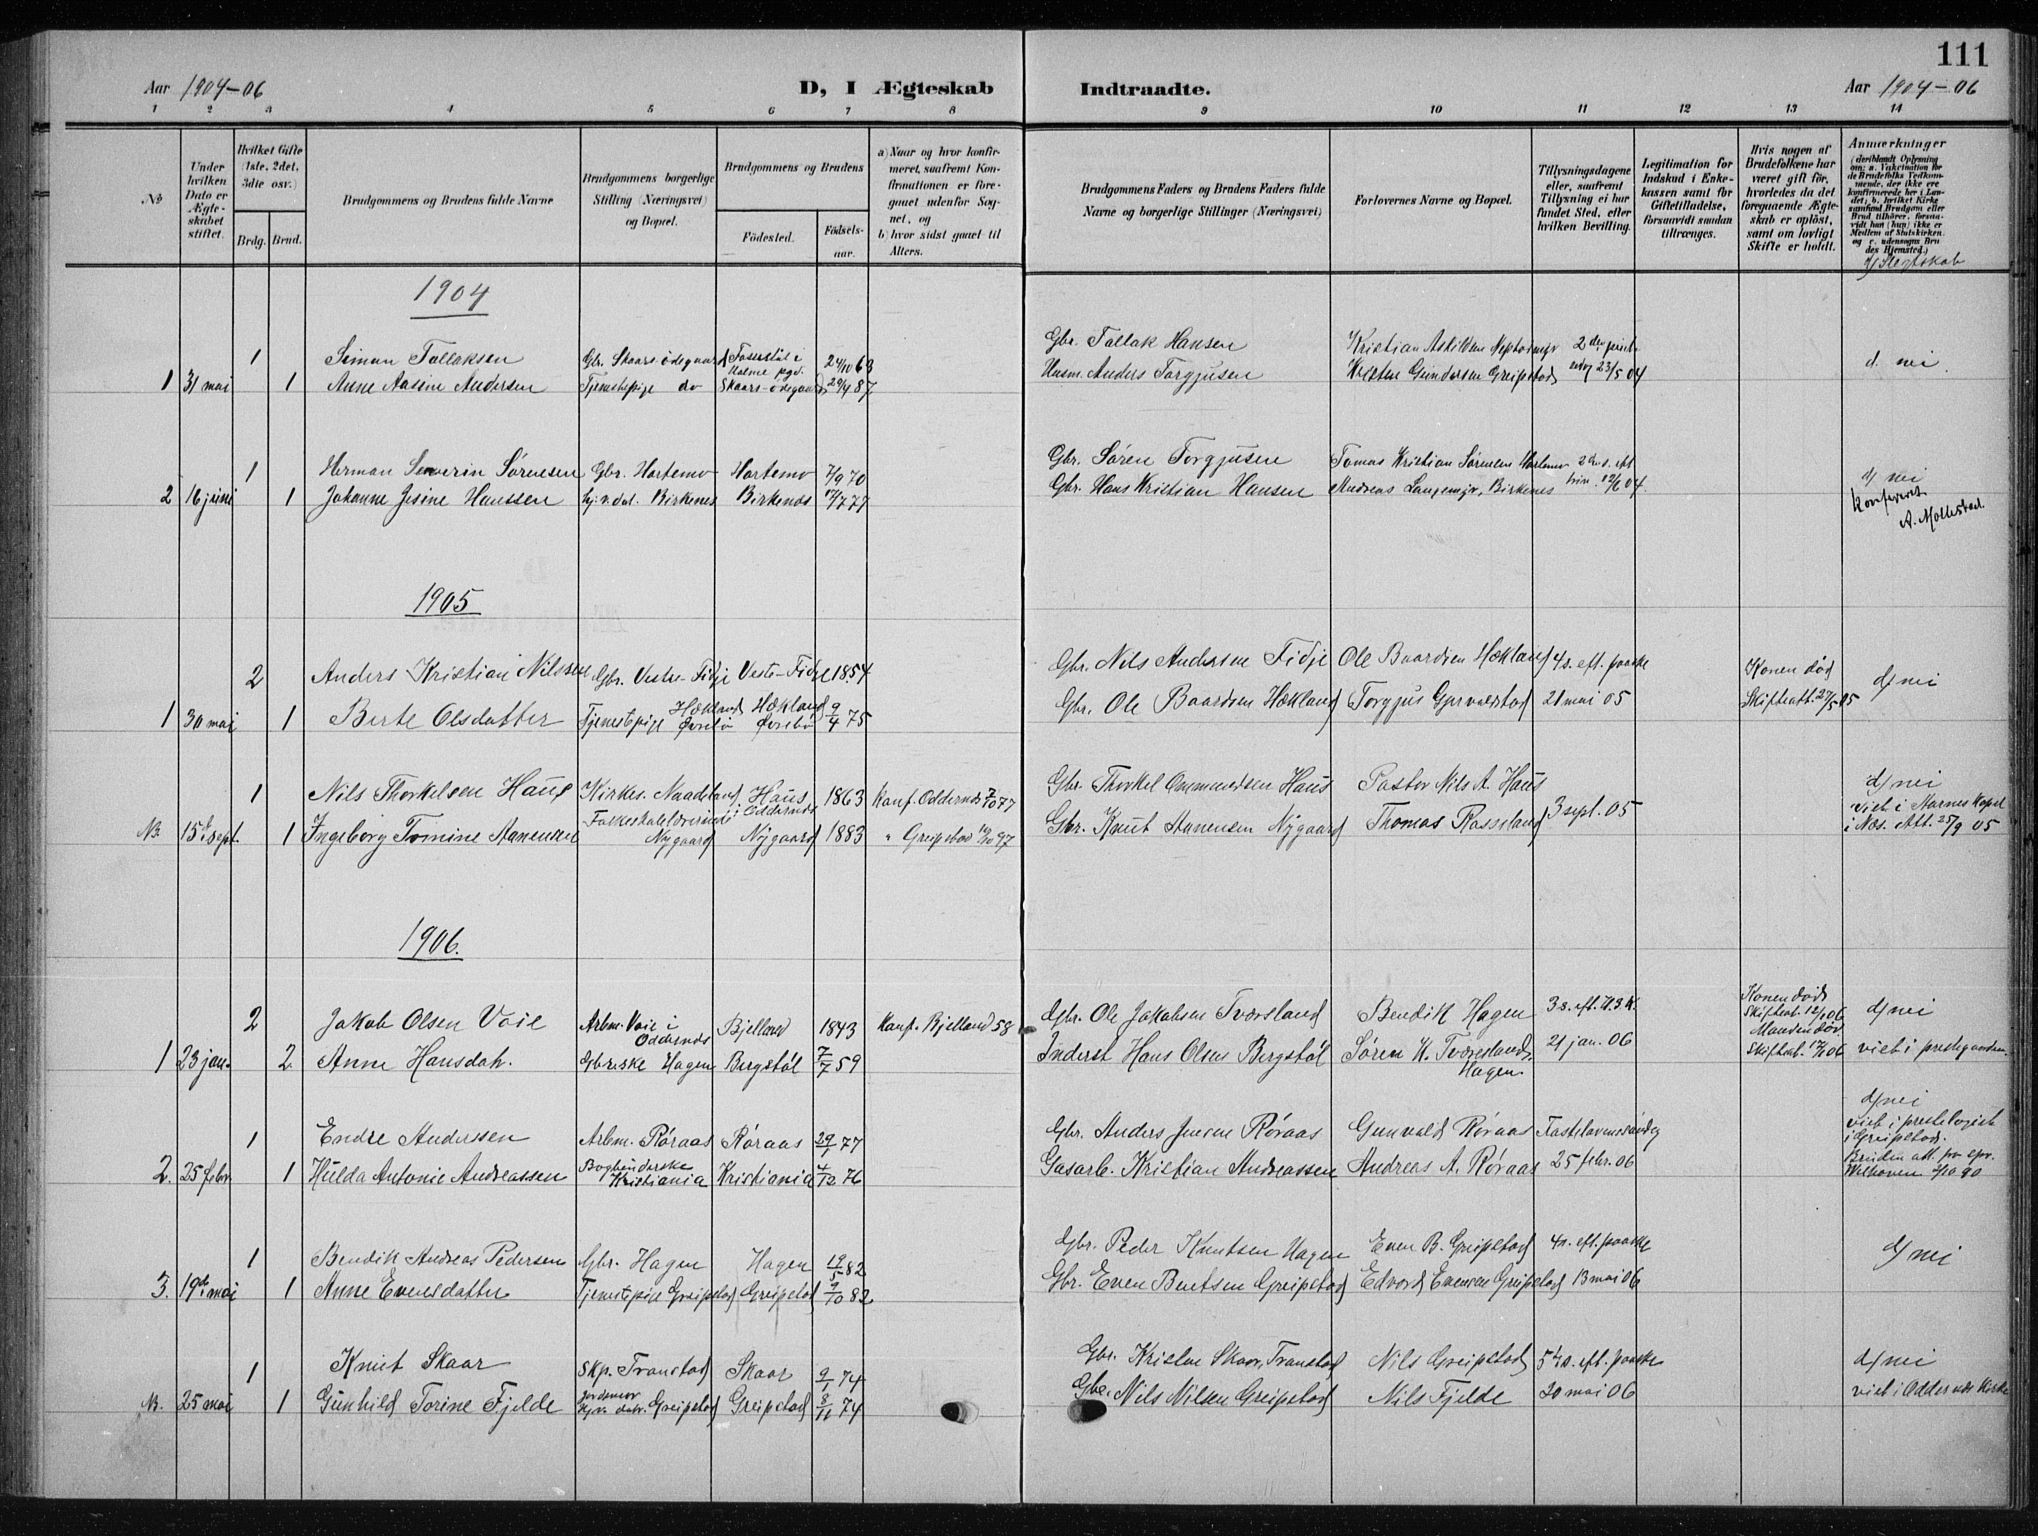 111
Aar 1904-06 D, I Ægteskab Indtraadte. Aar 1904-06
1 2 3 4 5 6 7 8 9 10 11 12 13 14
No
Under hvilken Dato er Ægteskabet stiftet.
Hvilket Gifte (1ste, 2det, 3die osv.)
Brdg. Brud.
Brudgommens og Brudens fulde Navne
Brudgommens borgerlige Stilling (Næringsvei) og Bopæl.
Brudgommens og Brudens
Fødested. Fødselsaar.
a) Naar og hvor konfirmeret, saafremt Konfirmationen er foregaaet udenfor Sognet, og
b) hvor sidst gaaet til Alters.
Brudgommens Faders og Brudens Faders fulde Navne og borgerlige Stillinger (Næringsvei)
Forlovernes Navne og Bopæl.
Tillysningsdagene eller, saafremt Tillysning ei har fundet Sted, efter hvilken Bevilling.
Legitimation for Indskud i Enkekassen samt for Giftetilladelse, forsaavidt saadan tiltrænges.
Hvis nogen af Brudefolkene har været gift før, hvorledes da det foregaaende Ægteskab er opløst, samt om lovligt Skifte er holdt.
Anmerkninger
(deriblandt Oplysning om: a. Vakcination for de Brudefolks Vedkommende, der ikke ere konfirmerede her i Landet; b. hvilket Kirkesamfund Brudgom eller Brud tilhører, forsaavidt han (hun) ikke er Medlem af Statskirken, og c. udensogns Brudes Hjemsted.)
d) Slegtskab
1904
1 Simon Tallaksen Gbr. Skaars-ødegaard i Holme pgd. 24/10 63 Gbr. Tallak Hansen Kristian Askildsen 2den pinse
1 31 mai 1 Anne Aasine Andersen Tjenestepige do Skaars-ødegaard 29/4 87 Husm. Anders Torgjusen Gundersen Greipstad 23/5 04 d. nei
1 Herman Severin Sørensen Gbr. Hortemo Hortemo 7/9 70 Gbr. Søren Torgjusen Tomas Kristian Sørensen Hortemo 2 s. eft.
2 16 juni 1 Johanne Jesine Hanssen hj.v.dat. Birkenes Birkenes 17/7 77 Gbr. Hans Kristian Hansen Andreas Langemyr, Birkenes trin. 12/6 04. d) nei
Konfereret.
A. Mollestad.
1905
2 Anders Kristian Nilssen Gbr. Vestre-Fidje Vestr-Fidje 1854 Gbr. Nils Andersen Fidje Ole Baardsen Hækland 4 s. eft. paaske Konen død
1 30 mai 1 Berte Olsdatter Tjenestepige Hækland Øvrebø Hækland Øvrebø 9/4 75 Gbr. Ole Baardsen Hækland Torgjus 21 mai 05 Skifteatt. 27/5 05 d) nei
1 Nils Thorkelsen Haus Kirkes. Naadeland Haus i Oddernes 1863 Konf. Oddernes 7/10 77 Gbr. Thorkel Ommundsen Haus Pastor Nils A. Haus d) nei
No. 15de sept. 1 Ingeborg Tomine Aanensen Folkeskolelærerinde Nygaard Nygaard 1883 " Greipstad 10/10 97 Gbr. Knut Aanensen Nygaard Thomas Rossland 3 sept. 05
viet i Aarnes Kapel i Næs. Att. 25/9 05
1906.
2 Jakob Olsen Voie Arbm. Voie i Oddernes Bjelland 1843 Konf. Bjelland 58 Gbr. Ole Jakobsen Tværsland Bendik Hagen 3 s. eft. H3K. Konen død Skifteat. 12/1 06 d) nei
1 23 jan. 2. Anne Hansdatr. Gbrske Hagen Bergstøl 7/7 59 Inderst Hans Olsen Bergstøl Søren K. Tværeland Hagen. 21 jan. 06 Manden død. Skifteat. 12/1 06 viet i prestegaarden.
1 Endre Anderssen Arbm. Røraas Røraas 29/1 77 Gbr. Anders Jensen Røraas Gunvald Røraas Fastelavenssøndag d) nei
2. 25 febr 1 Hulda Antonie Andreassen Bogbinderske Kristiania Kristiania 4/12 76 Gasarb. Kristian Andreassen Andreas A. Røraas 25 febr. 06
viet i prestelogiet i Greipstad.
Bruden att. fra spr. Welhaven
1 Bendik Andreas Pedersen Gbr. Hagen Hagen 19/5 82 Gbr. Peder Knutsen Hagen Even B. Greipstad 4 s. eft. paaske
3. 19de mai 1 Anne Evensdatter Tjenestepige Greipstad Greipstad 9/10 82 Gbr. Even Bentsen Greipstad Edvard Evensen Greipstad 13 mai 06 d) nei
1 Knut Skaar Skp. Transtad Skaar 9/1 74 Gbr. Kristen Skaar, Transtad Nils Greipstad 5te s. eft. paaske d) nei
No. 25 mai 1 Gunhild Torine Fjelde Jordemor Greipstad Greipstad 8/11 74 Gbr. Nils Nilsen Greipstad Nils Fjelde 20 mai 06 viet i Oddernes Kirke